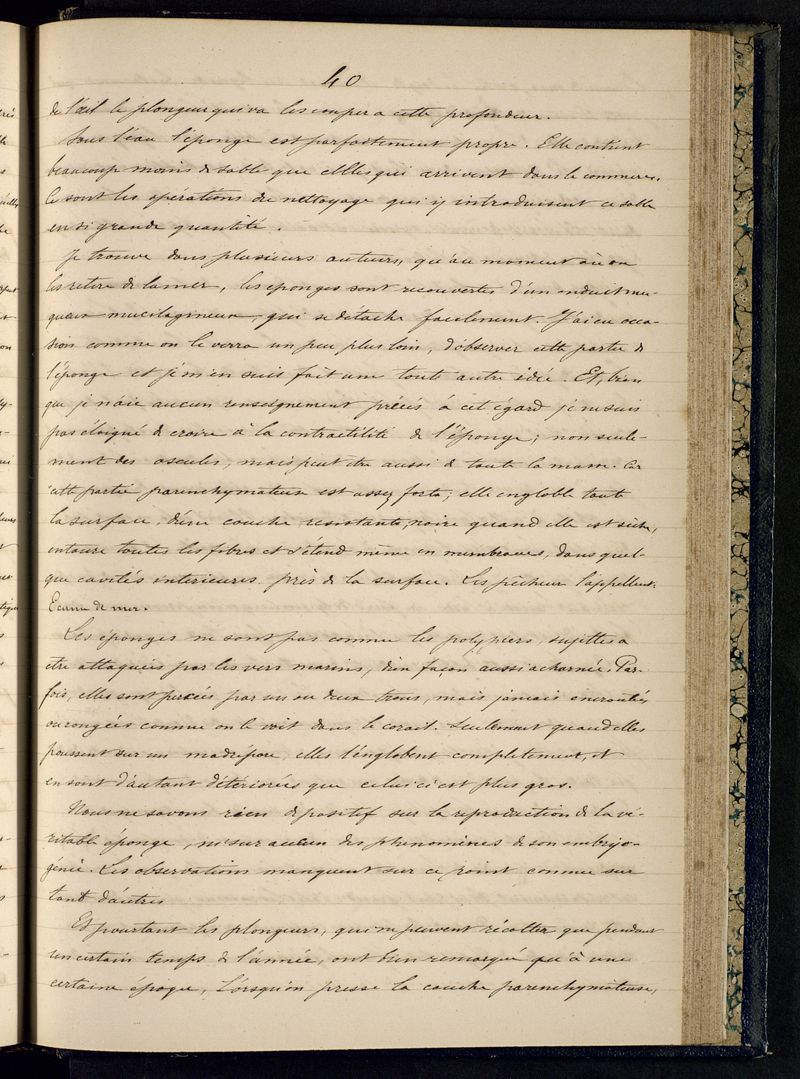 40
de l'œil le plongeur qui va les couper a cette profondeur.
Sous l'eau l'éponge est parfaitement propre. Elle contient
beaucoup moins de sable que celles qui arrivent dans le commerce.
Ce sont les opérations du nettoyage qui y introduisent ce sable
en si grande quantité.
Je trouve dans plusieurs auteurs, qu'au moment où on
les retire de la mer, les éponges sont recouvertes d'un enduit mu-
queux mucilagineux, qui se détache facilement. J'ai eu occa-
sion comme on le verra un peu plus loin, d'observer cette partie de
l'éponge et je m'en suis fait une toute autre idée. Et, bien
que je n'aie aucun renseignement précis à cet égard je ne suis
pas éloigné de croire à la contractilité de l'éponge; non seule-
ment des oscules, mais peut être aussi de toute la masse. Car
cette partie parenchymateuse est assez forte; elle englobe toute
la surface, d'une couche resistante, noire quand elle est sèche,
entoure toutes les fibres et s'étend même en membranes, dans quel-
que cavités intérieures près de la surface. Les pêcheur l'appellent
Ecume de mer.
Les éponges ne sont pas comme les polypiers, sujettes a
etre attaquées par les vers marins, d'un façon aussi acharnée. Par-
fois, elles sont percés par un ou deux trous, mais jamais encroutés
ou rongées comme on le voit dans le corail. Seulement quand elles
poussent sur un madrépore, elles l'englobent completement, et
en sont d'autant détériorées que celui ci est plus gros.
Nous ne savons rien de positif sur la reproduction de la vé-
ritable éponge, ni sur aucun des phénomènes de son embryo-
génie. Les observations manquent sur ce point comme sur
tant d'autres
Et pourtant les plongeurs, qui ne peuvent récolter que pendant
un certain temps de l'année, ont bien remarqué qu'à une
certaine époque, Lorsqu'on presse la couche parenchymateuse,